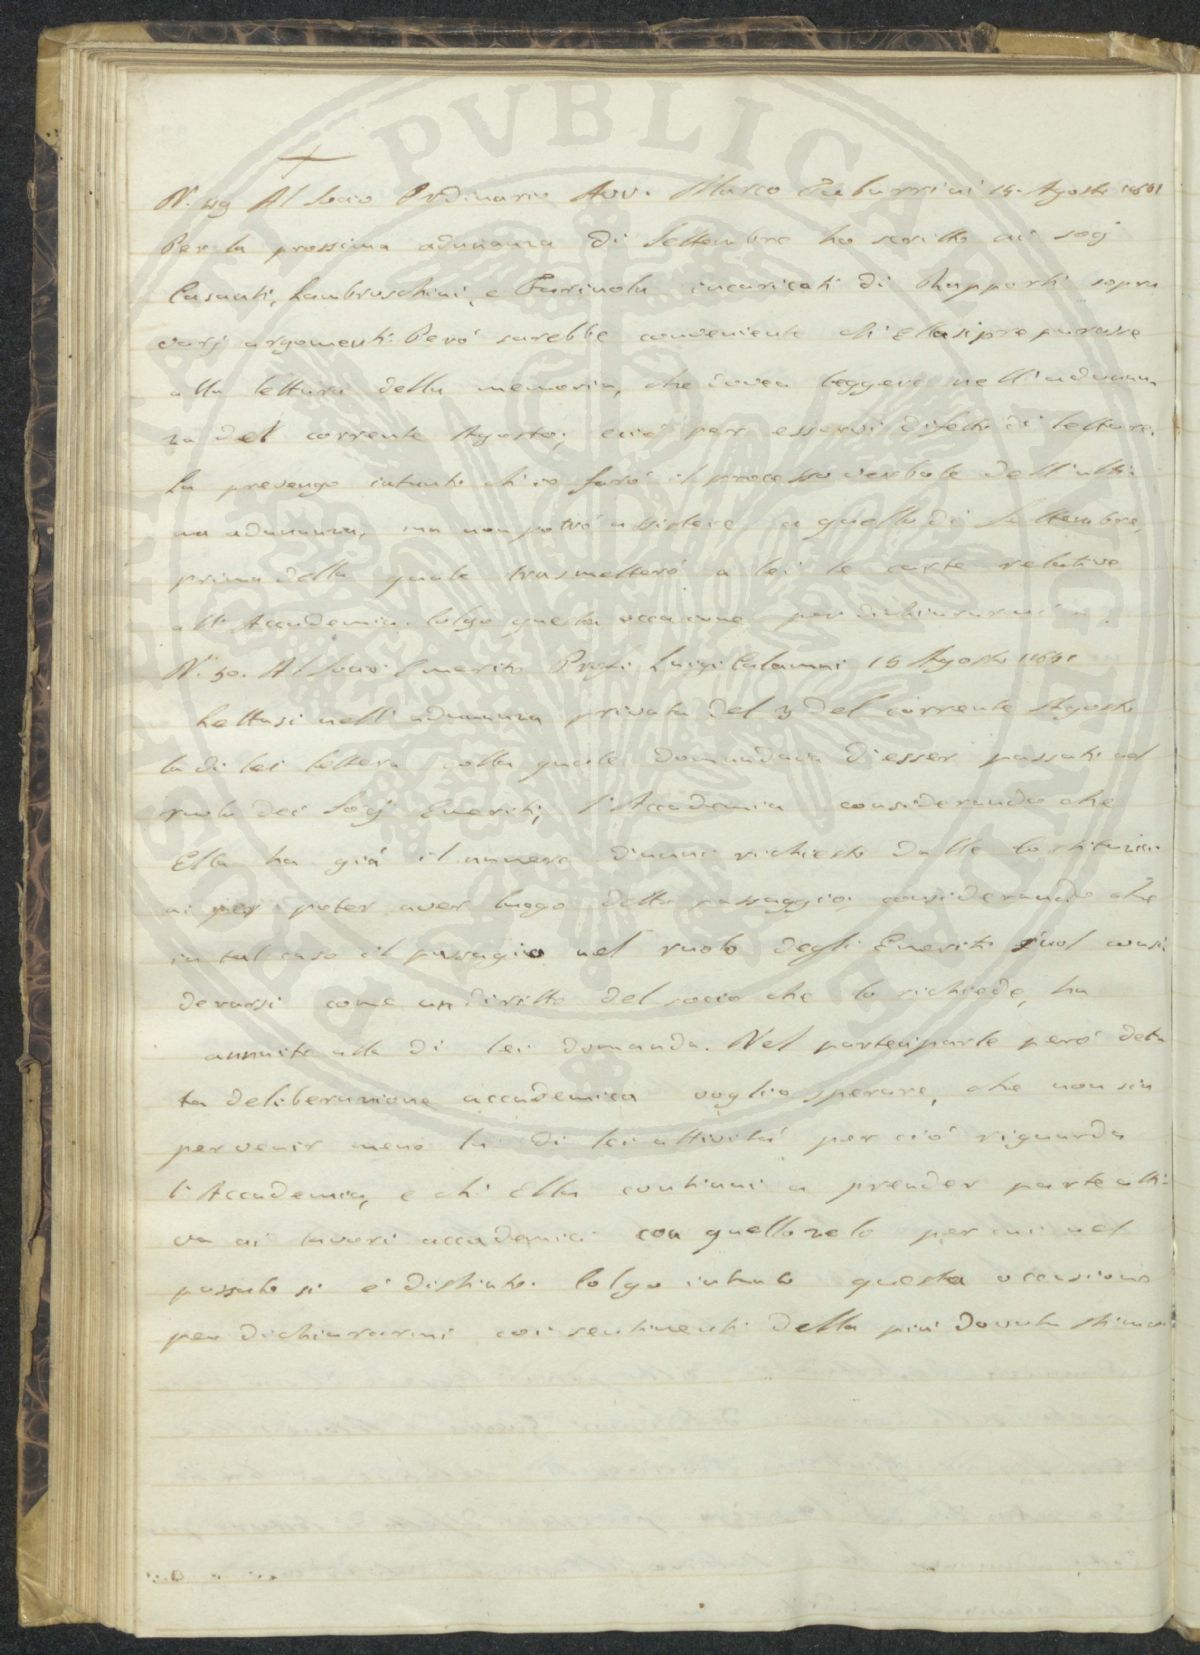 PVBLICAE
N. 49 Al Socio Ordinario Avv. Marco Tabarrini 15. Agosto 1851
Per la prossima adunanza di Settembre ho scritto ai socj
Casanti, Lambruschini, e Farinola incaricati di Rapporti sopra
varj argomenti. Però sarebbe conveniente ch'ella si preparasse
alla lettura della memoria, che dovea leggere nell'adunan-
za del corrente Agosto; ciò per esservi difetto di letture.
La prevengo intanto ch'io farò il processo verbale dell'ulti-
ma adunanza, ma non potrò assistere a quello di Settembre,
prima della quale trasmetterò a lei le carte relative
all'Accademia. Colgo questa occasione per dichiararmi
N. 50. Al Socio Emerito Prof. Luigi Calamai 16 Agosto 1851
Lettasi nell'adunanza privata del 3 del corrente Agosto
la di lei lettera colla quale domandava d'esser passato al
ruolo dei Socj Emeriti, l'Accademia considerando che
Ella ha già il numero d'anni richiesto dalle Costituzio-
ni per poter aver luogo detto passaggio, considerando che
in tal caso il passagio nel ruolo degli Emeriti suol consi-
derarsi come un diritto del socio che lo richiede, ha
annuito alla di lei domanda. Nel partecipparle però det-
ta deliberazione accademica voglio sperare, che non sia
per venir meno la di lei attività per ciò riguarda
l'Accademia, e ch'Ella continui a prender parte atti-
va ai lavori accademici con quello zelo per cui nel
passato si è distinto. Colgo intanto questa occasione
per dichiararmi coi sentimenti della più dovuta stima